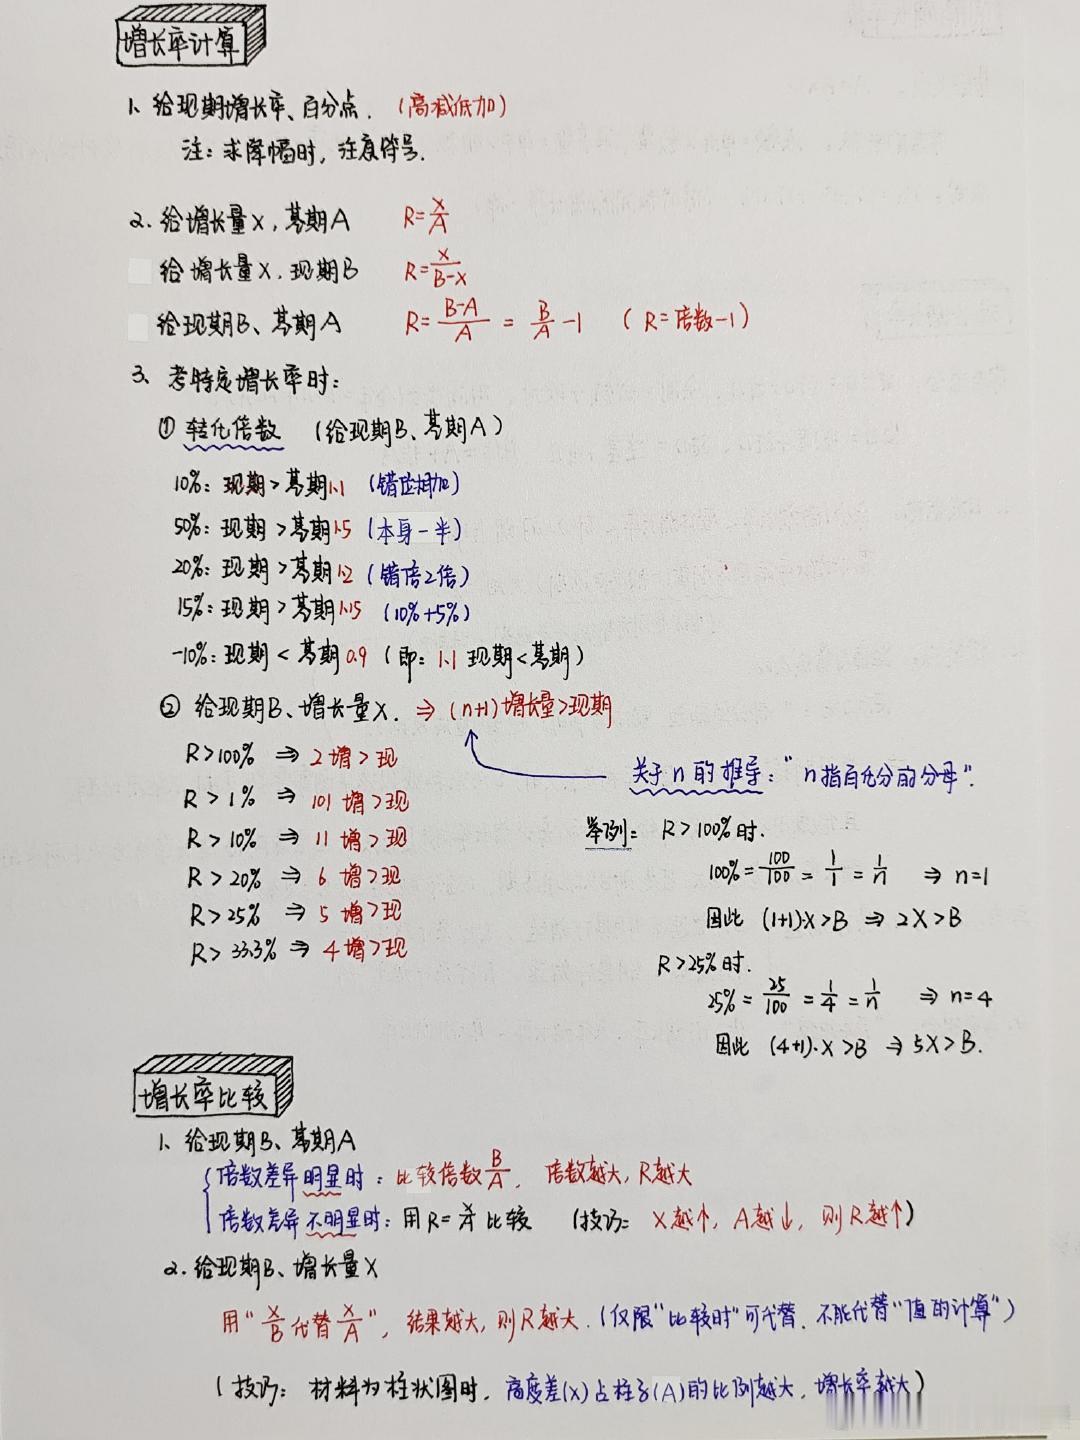 增长率计算
1、给现期增长率、百分点.（高减低加）
注：求降幅时，注意符号.
2. 给增长量X，基期A R=X/A
给增长量X.现期B R=X/(B-X)
给现期B、基期A R=(B-A)/A = B/A -1 （R=倍数-1）
3、考特定增长率时：
① 转化倍数 （给现期B、基期A）
10%：现期>基期1.1（错位相加）
50%：现期>基期1.5（本身一半）
20%：现期>基期1.2（错倍2倍）
15%：现期>基期1.15（10%+5%）
-10%：现期<基期0.9（即：1.1现期<基期）
② 给现期B、增长量X. ⇒（n+1）增长量>现期
R>100% ⇒ 2增>现
关于n的推导：“n指百化分的分母”.
R>1% ⇒ 101增>现
举例：R>100%时.
R>10% ⇒ 11增>现
100%=100/100=1/1=1/n ⇒ n=1
R>20% ⇒ 6增>现
R>25% ⇒ 5增>现
因此（1+1)·X>B ⇒ 2X>B
R>33.3% ⇒ 4增>现
R>25%时.
25%=25/100=1/4=1/n ⇒ n=4
因此（4+1)·X>B ⇒ 5X>B.
增长率比较
1、给现期B、基期A
倍数差异明显时：比较倍数B/A，倍数越大，R越大
倍数差异不明显时：用R=X/A比较 （技巧：X越↑，A越↓，则R越↑）
2.给现期B、增长量X
用“X/B代替X/A”，结果越大，则R越大.（仅限“比较时”可代替.不能代替“值的计算”）
（技巧：材料为柱状图时，高度差(X)占柱子(A)的比例越大，增长率越大）